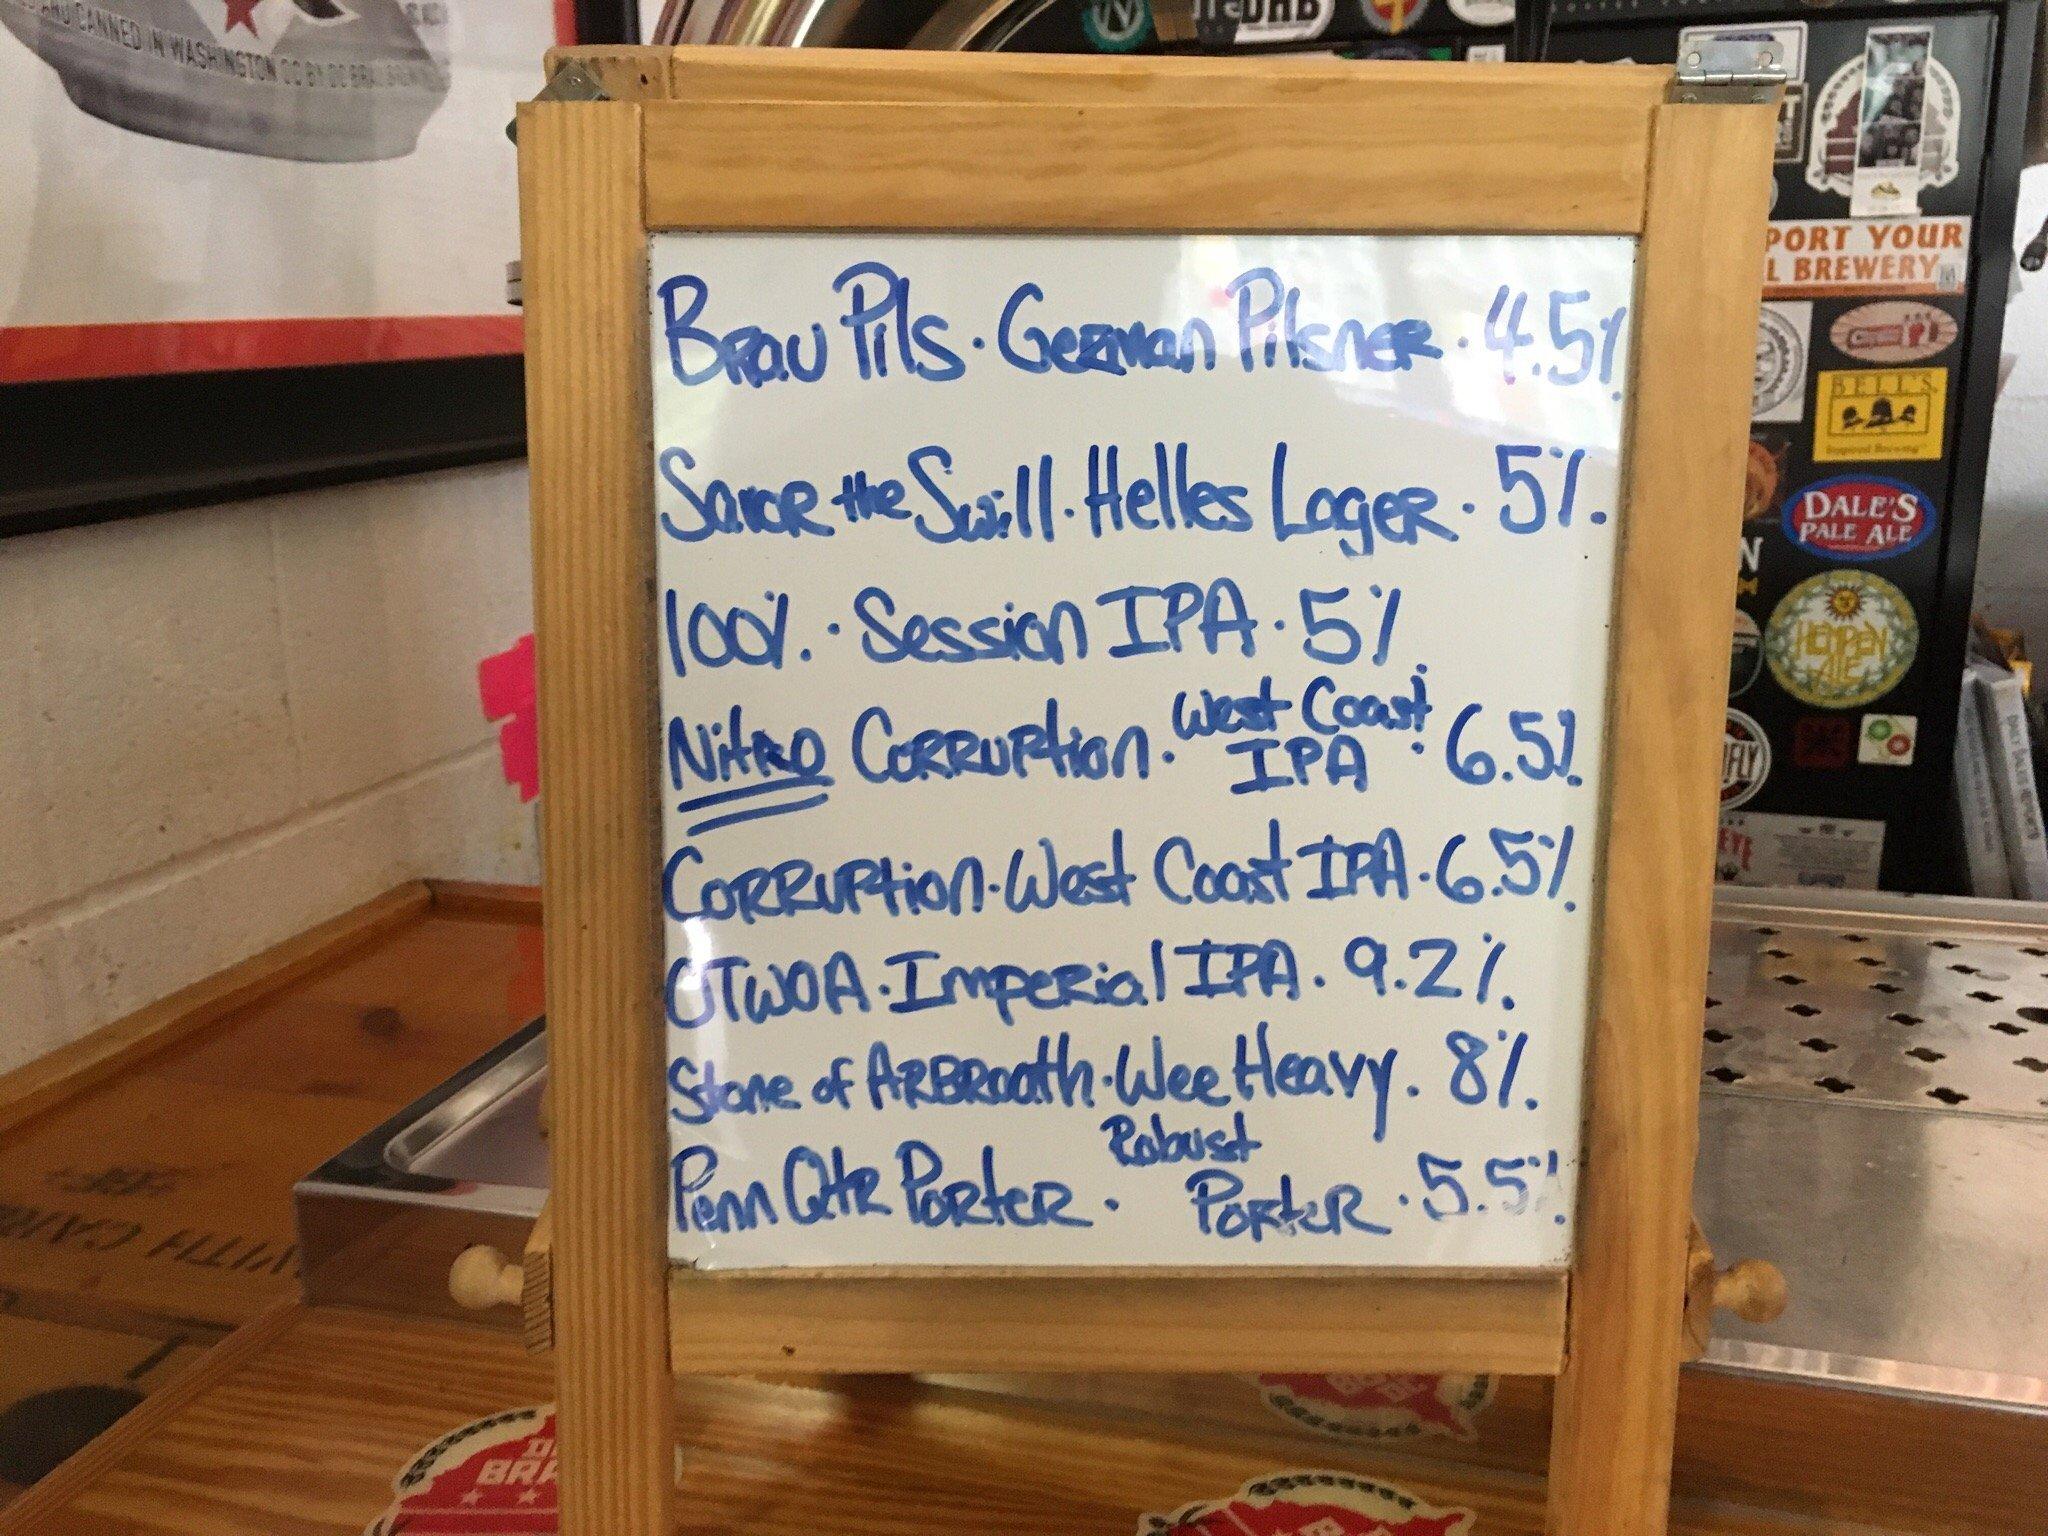 AND CANNED IN WASHINGTON DC BY DC BRAU
DHB
PORT YOUR
L BREWERY
BELL'S
DALE'S
PALE ALE
HEMPEN
ALE
Brau Pils · German Pilsner · 4.5%
Savor the Swill · Helles Lager · 5%
100% · Session IPA · 5%
Nitro Corruption · West Coast IPA · 6.5%
Corruption · West Coast IPA · 6.5%
OTWOA · Imperial IPA · 9.2%
Stone of Arbroath · Wee Heavy · 8%
Penn Qtr Porter · Robust Porter · 5.5%
WITH CAU
BRA